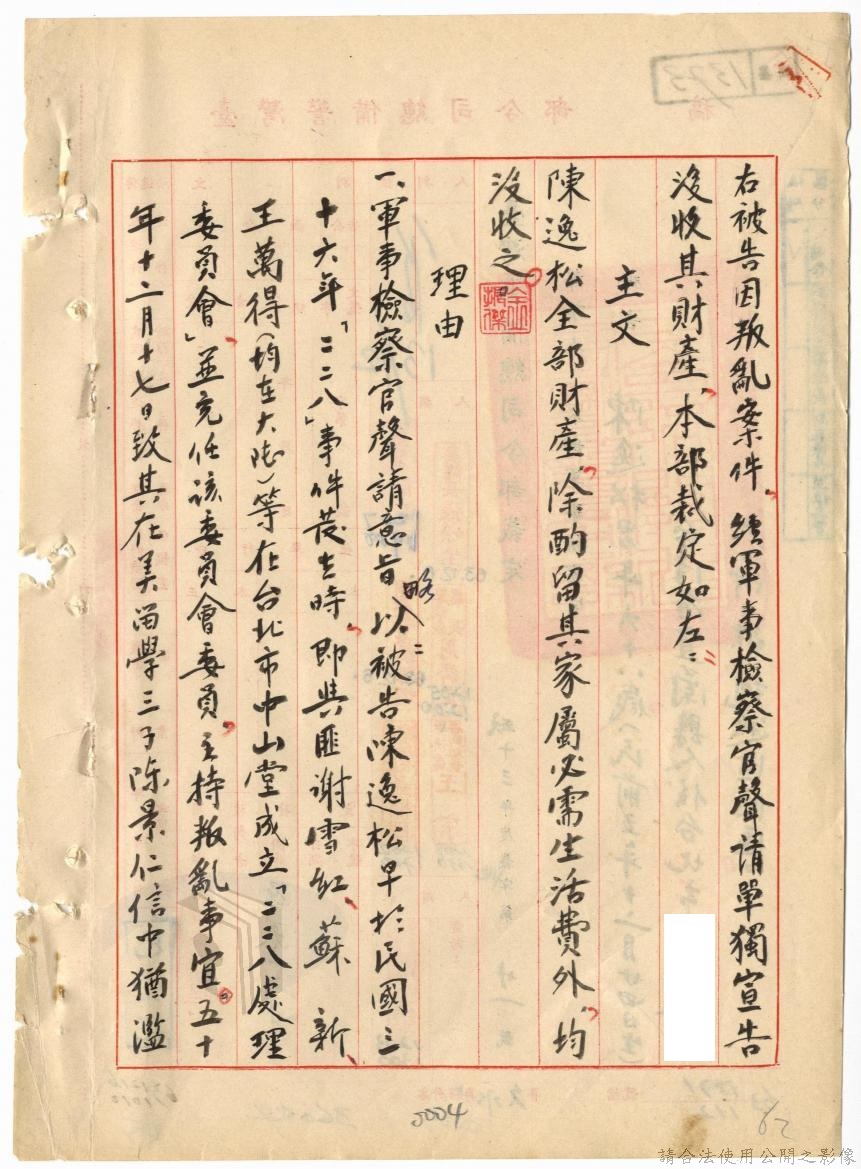 右被告因叛亂案件，經軍事檢察官聲請單獨宣告
沒收其財產，本部裁定如左：
主文
陳逸松全部財產，除酌留其家屬必需生活費外，均
沒收之。
理由
一、軍事檢察官聲請意旨略以：被告陳逸松早於民國三
十六年「二二八」事件發生時，即與匪謝雪紅、蘇新、
王萬得（均在大陸）等在台北市中山堂成立「二二八處理
委員會」，並充任該委員會委員，主持叛亂事宜。五十
年十二月十七日致其在美留學三子陳景仁信中猶濫
1373
臺灣警備總司令部
稿
0004
62
請合法使用公開之影像